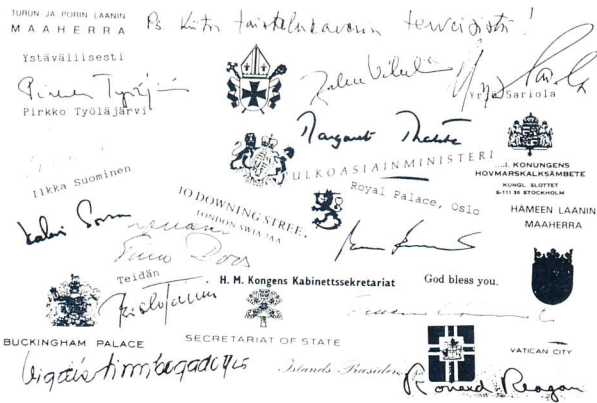 TURUN JA PORIN LAANIN
MAAHERRA
Ps Kiitos taistelukaverin terveisistä!
Ystävällisesti
Pirkko Työläjärvi
Yrjö Sariola
Margaret Thatcher
ULKOASIAINMINISTERI
H.M. KONUNGENS
HOVMARSKALKSÄMBETE
KUNGL. SLOTTET
S-111 30 STOCKHOLM
Ilkka Suominen
10 DOWNING STREET,
LONDON SW1A 2AA
Royal Palace, Oslo
HÄMEEN LAANIN
MAAHERRA
Kalevi Sorsa
Teidän
H. M. Kongens Kabinettssekretariat
God bless you.
BUCKINGHAM PALACE
SECRETARIAT OF STATE
VATICAN CITY
vigdís finnbogadóttir
Íslands
Ronald Reagan